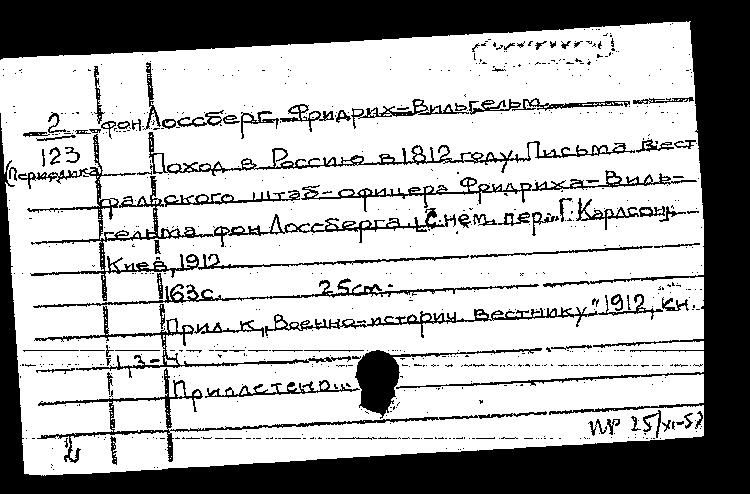 2
123
(Периодика)
фон Лоссберг, Фридрих-Вильгельм.
Поход в Россию в 1812 году. Письма вест
фальского штаб-офицера Фридриха-Виль-
гельма фон Лоссберга. С нем. пер. Г. Карлсон,
Киев, 1912.
163 с. 25 см.
Прил. к „Военно-историч. вестнику" 1912, кн.
1, 3-4.
Приплетено...
25/XI-57